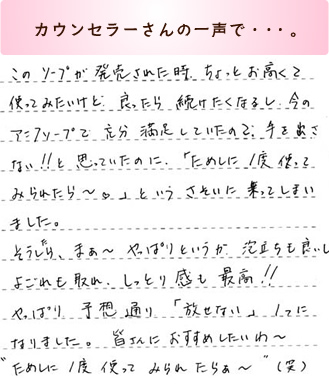 カウンセラーさんの一声で・・・。
このソープが発売された時、ちょっとお高くて
使ってみたいけど、良ったら続けたくなるし、今の
アニフソープで充分満足していたので、手を出さ
ない!!と思っていたのに、「ためしに1度使って
みられたら〜♡」というさそいに乗ってしまい
ました。
そうしたら、まぁ〜やっぱりというか泡立ちも良いし
よごれも取れ、しっとり感も最高!!
やっぱり予想通り「放せない」1つに
なりました。皆さんにおすすめしたいわ〜
"ためしに1度使ってみられたらぁ〜"(笑)